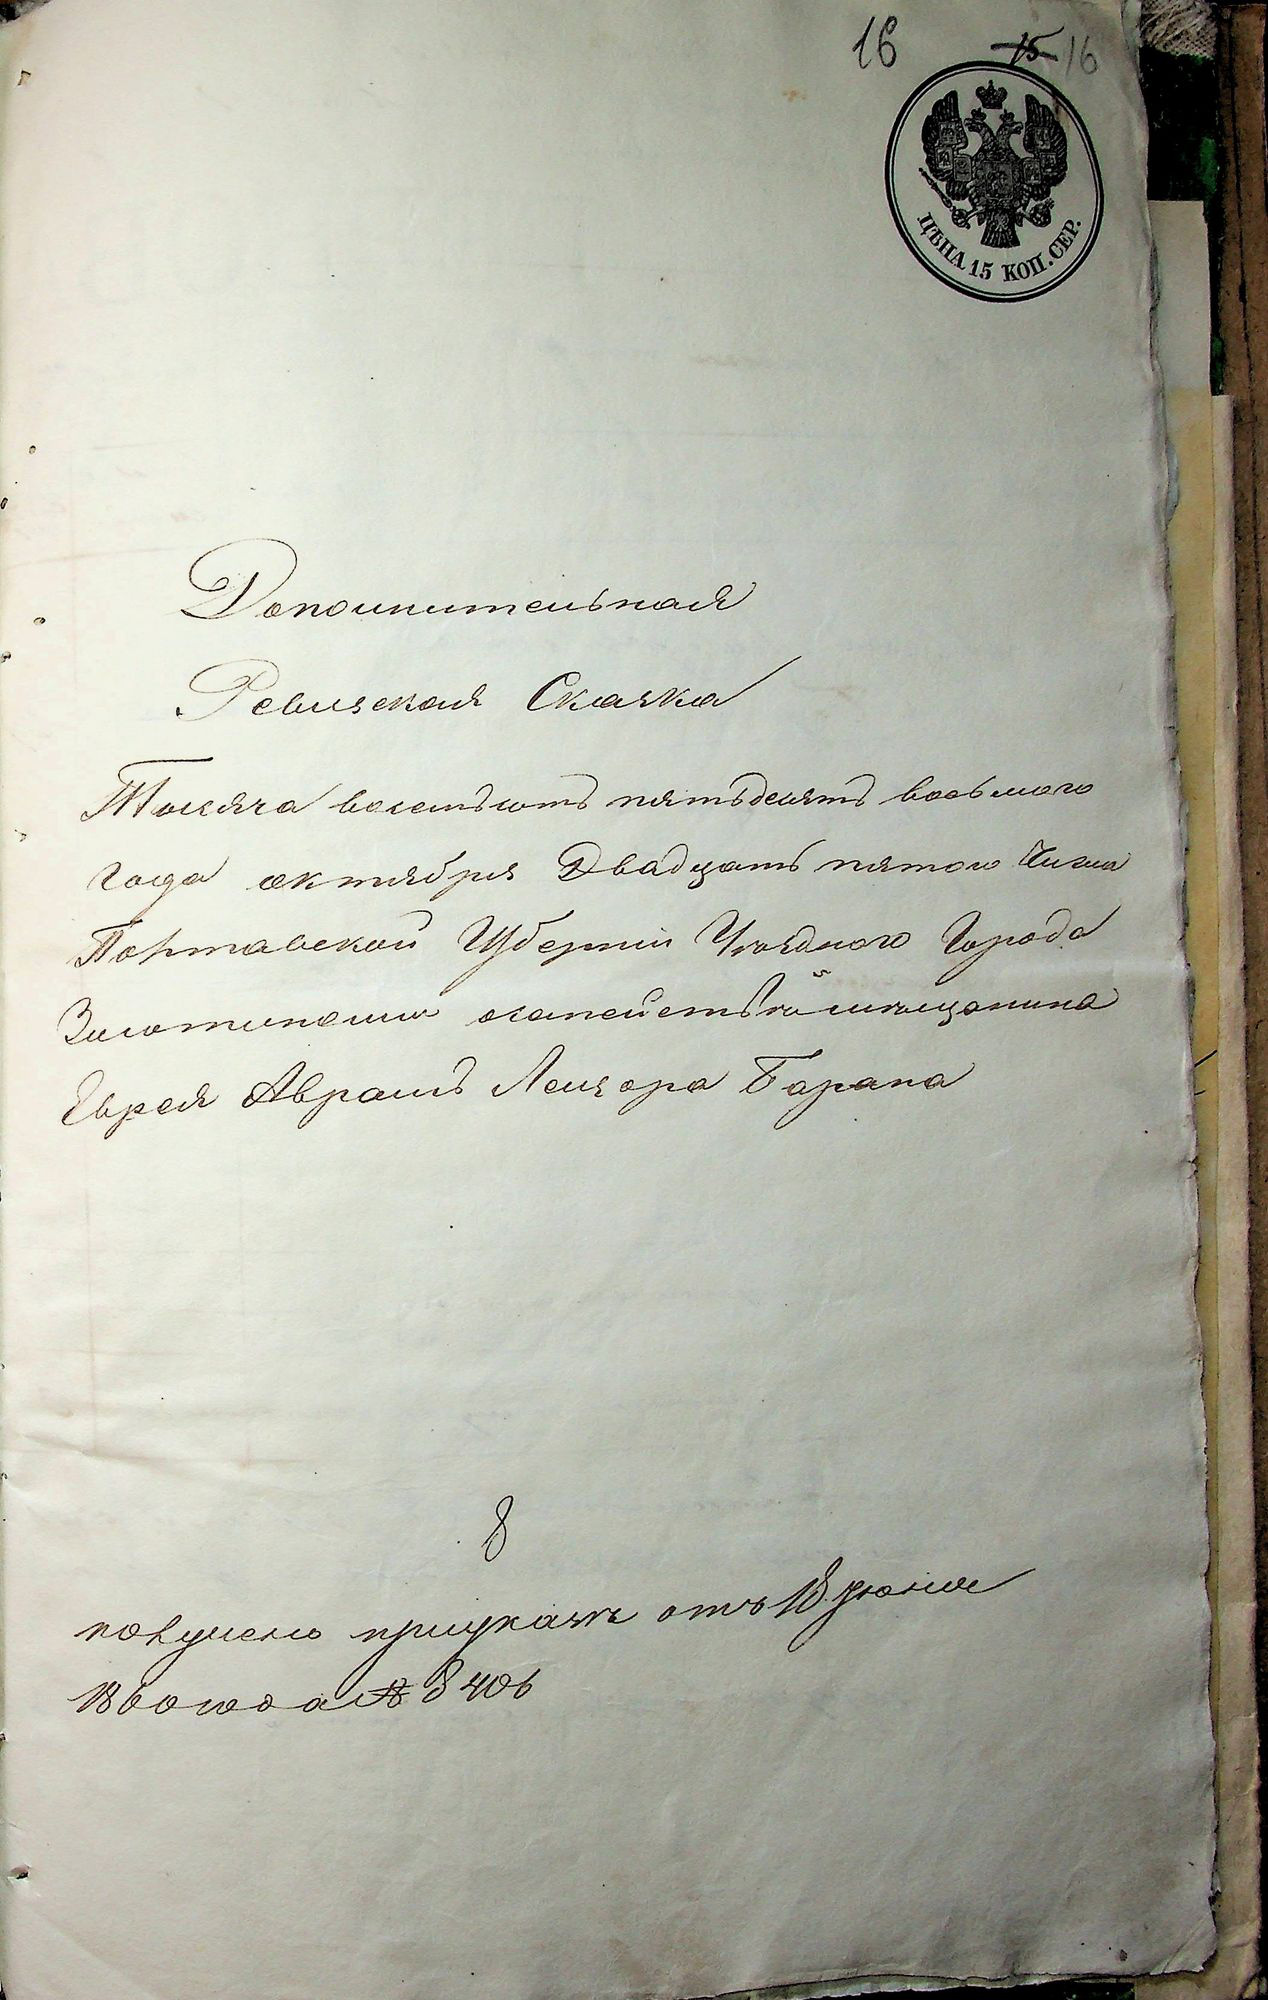 16 15 16
ЦѢНА 15 КОП. СЕР.
Дополнительная
Ревизская Сказка
Тысяча восемьсотъ пятьдесятъ восьмого
года октября Двадцать пятого Числа
Полтавской Губерніи Уѣзднаго Города
Золотоноши о семействѣ мѣщанина
Еврея Аврамъ Лейзора Барана
8
получено при указѣ отъ 18 Іюня
1860 года № 8406